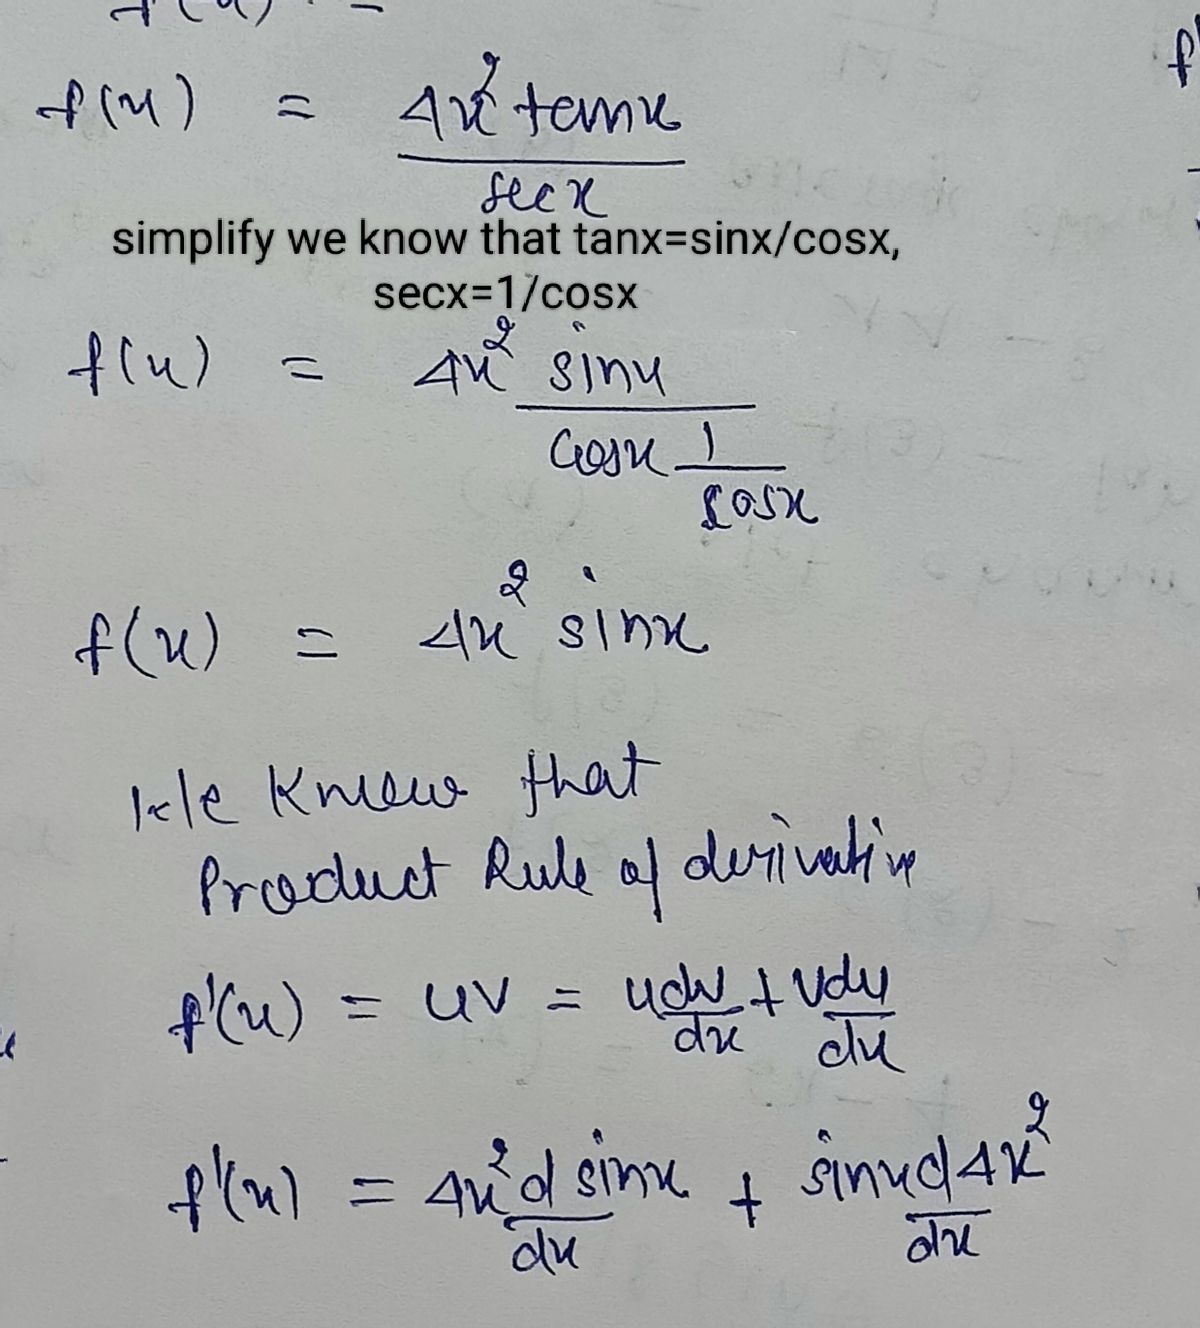 f(x) =
f(x) = 4x² tanx / secx
simplify we know that tanx=sinx/cosx,
secx=1/cosx
f(x) = 4x² sinx / cosx 1/cosx
f(x) = 4x² sinx
We Know that
Product Rule of derivative
f'(x) = uv = udv/dx + vdu/dx
f'(x) = 4x² d sinx/dx + sinx d 4x²/dx